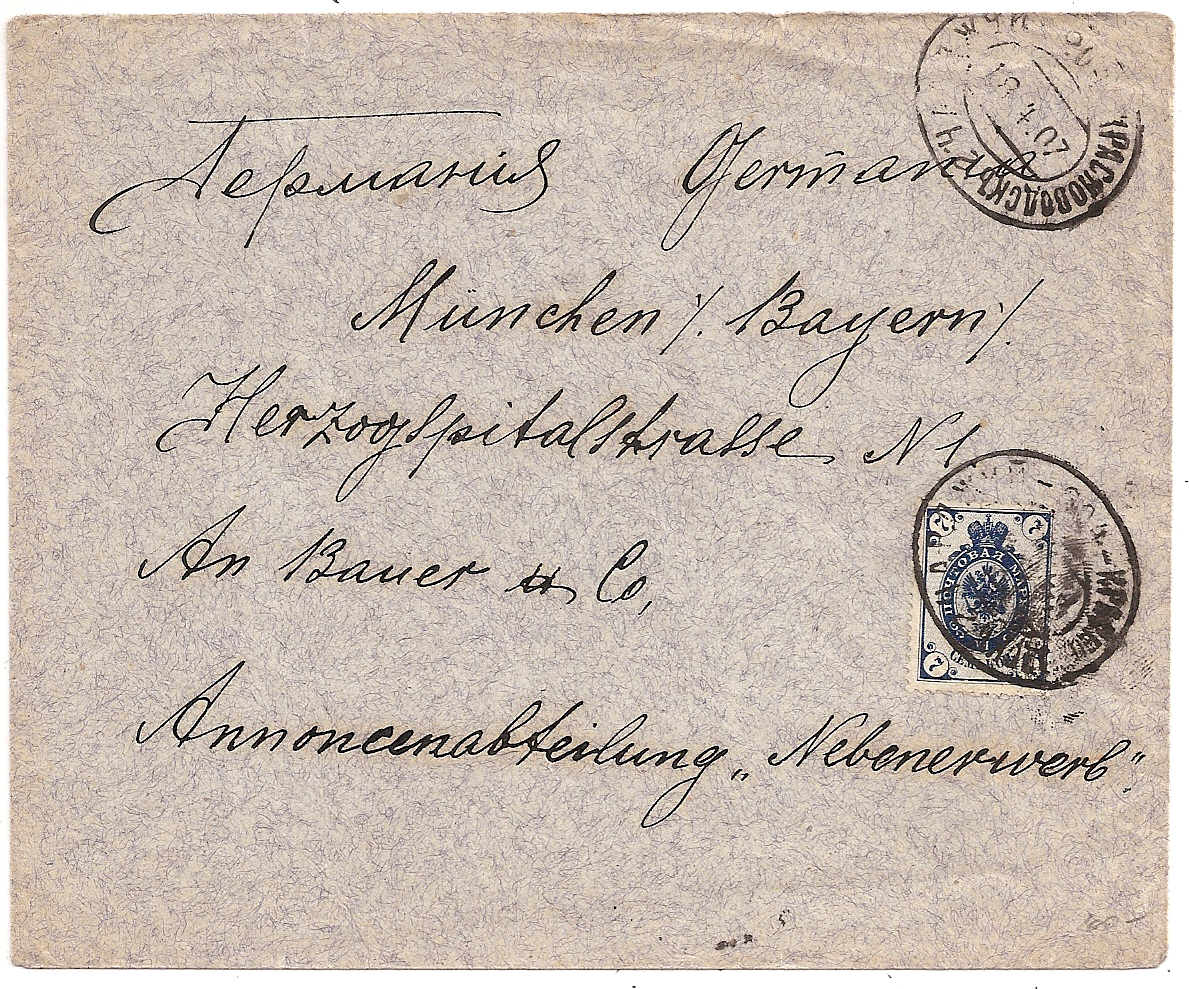 Германия Germania
München /. Bayern /.
Herzogspitalstrasse N1
An Bauer u Co,
Annoncenabteilung „Nebenerwerb“.
КРАСНОВОДСКЪ
18 4 07
7 7
ПОЧТОВАЯ МАРКА
7